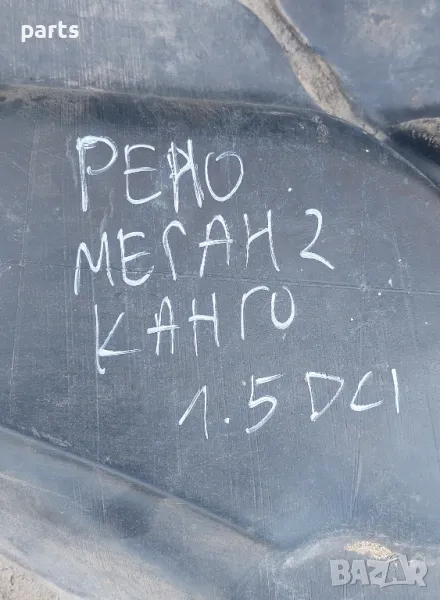 parts
РЕНО
МЕГАН 2
КАНГО
1.5 DCI
BAZAR